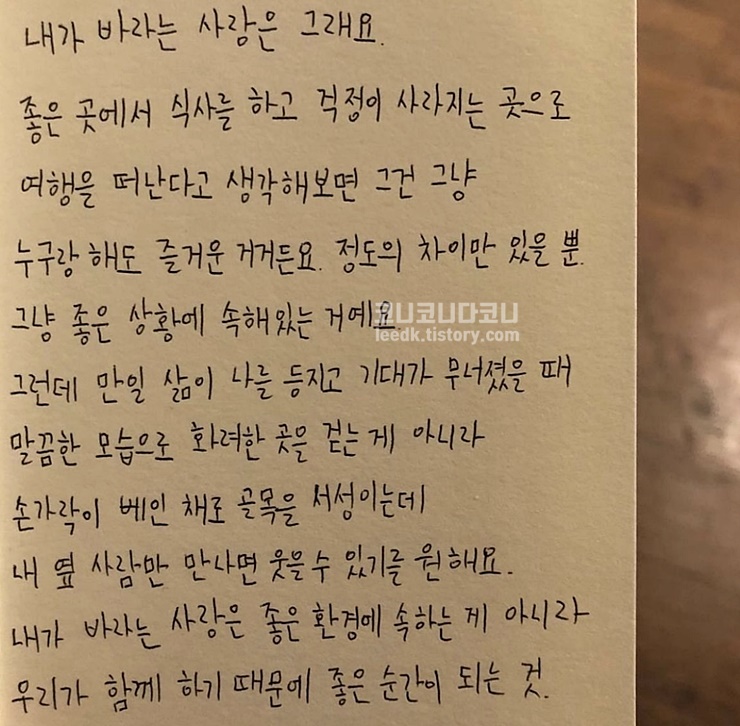 내가 바라는 사랑은 그래요.
좋은 곳에서 식사를 하고 걱정이 사라지는 곳으로
여행을 떠난다고 생각해보면 그건 그냥
누구랑 해도 즐거운 거거든요. 정도의 차이만 있을 뿐.
그냥 좋은 상황에 속해있는 거예요.
코니코니다코니
leedk.tistory.com
그런데 만일 삶이 나를 등지고 기대가 무너졌을 때
말끔한 모습으로 화려한 곳을 걷는 게 아니라
손가락이 베인 채로 골목을 서성이는데
내 옆 사람만 만나면 웃을 수 있기를 원해요.
내가 바라는 사랑은 좋은 환경에 속하는 게 아니라
우리가 함께 하기 때문에 좋은 순간이 되는 것.